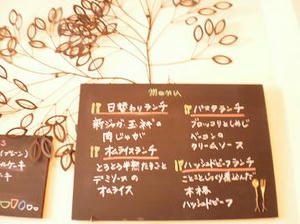 menu
日替わりランチ
新じゃが、玉ネギの
肉じゃが
オムライスランチ
とろとろ半熟たまごと
デミソースの
オムライス
パスタランチ
ブロッコリーとしめじ
ベーコンの
クリームソース
ハッシュドビーフランチ
ことことじっくり煮込んだ
本格
ハッシュドビーフ